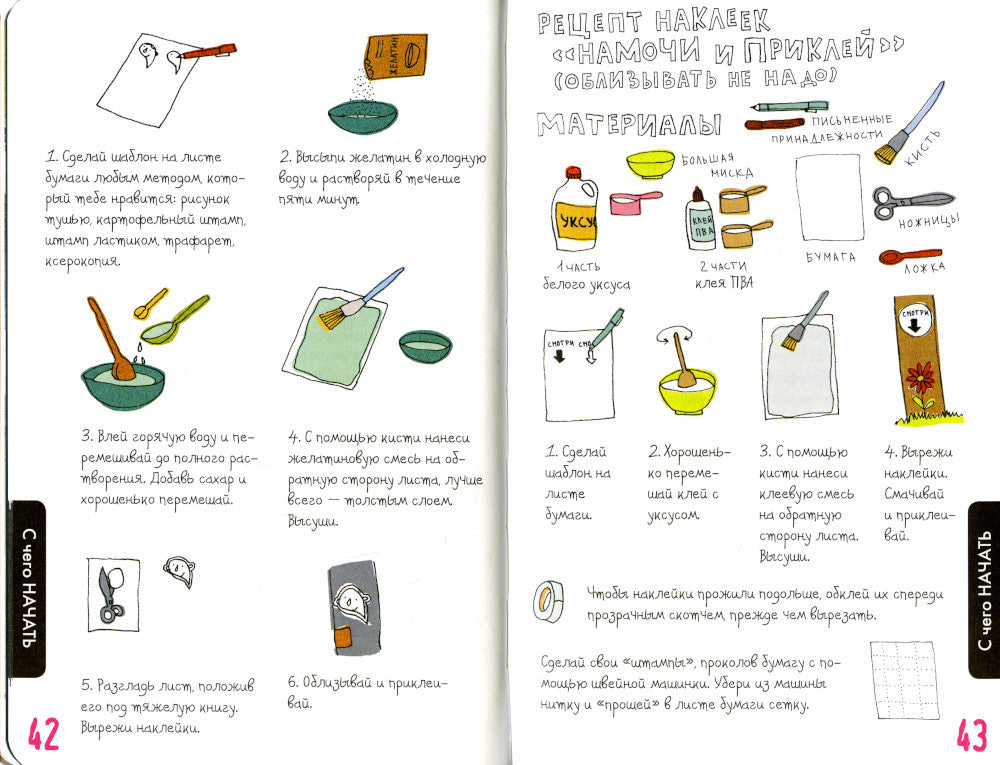 ЖЕЛАТИН
1. Сделай шаблон на листе
бумаги любым методом, кото-
рый тебе нравится: рисунок
тушью, картофельный штамп,
штамп ластиком, трафарет,
ксерокопия.
2. Высыпи желатин в холодную
воду и растворяй в течение
пяти минут.
3. Влей горячую воду и пе-
ремешивай до полного рас-
творения. Добавь сахар и
хорошенько перемешай.
4. С помощью кисти нанеси
желатиновую смесь на об-
ратную сторону листа, лучше
всего — толстым слоем.
Высуши.
5. Разгладь лист, положив
его под тяжелую книгу.
Вырежи наклейки.
6. Облизывай и приклеи-
вай.
С чего НАЧАТЬ
42
РЕЦЕПТ НАКЛЕЕК
«НАМОЧИ И ПРИКЛЕЙ»
(ОБЛИЗЫВАТЬ НЕ НАДО)
МАТЕРИАЛЫ
ПИСЬМЕННЫЕ
ПРИНАДЛЕЖНОСТИ
КИСТЬ
БОЛЬШАЯ
МИСКА
УКСУС
КЛЕЙ
ПВА
НОЖНИЦЫ
БУМАГА
ЛОЖКА
1 часть
белого уксуса
2 части
клея ПВА
СМОТРИ
СМО
СМОТРИ
1. Сделай
шаблон на
листе
бумаги.
2. Хорошень-
ко переме-
шай клей с
уксусом.
3. С помощью
кисти нанеси
клеевую смесь
на обратную
сторону листа.
Высуши.
4. Вырежи
наклейки.
Смачивай
и приклеи-
вай.
Чтобы наклейки прожили подольше, обклей их спереди
прозрачным скотчем, прежде чем вырезать.
Сделай свои «штампы», проколов бумагу с по-
мощью швейной машинки. Убери из машины
нитку и «прошей» в листе бумаги сетку.
С чего НАЧАТЬ
43